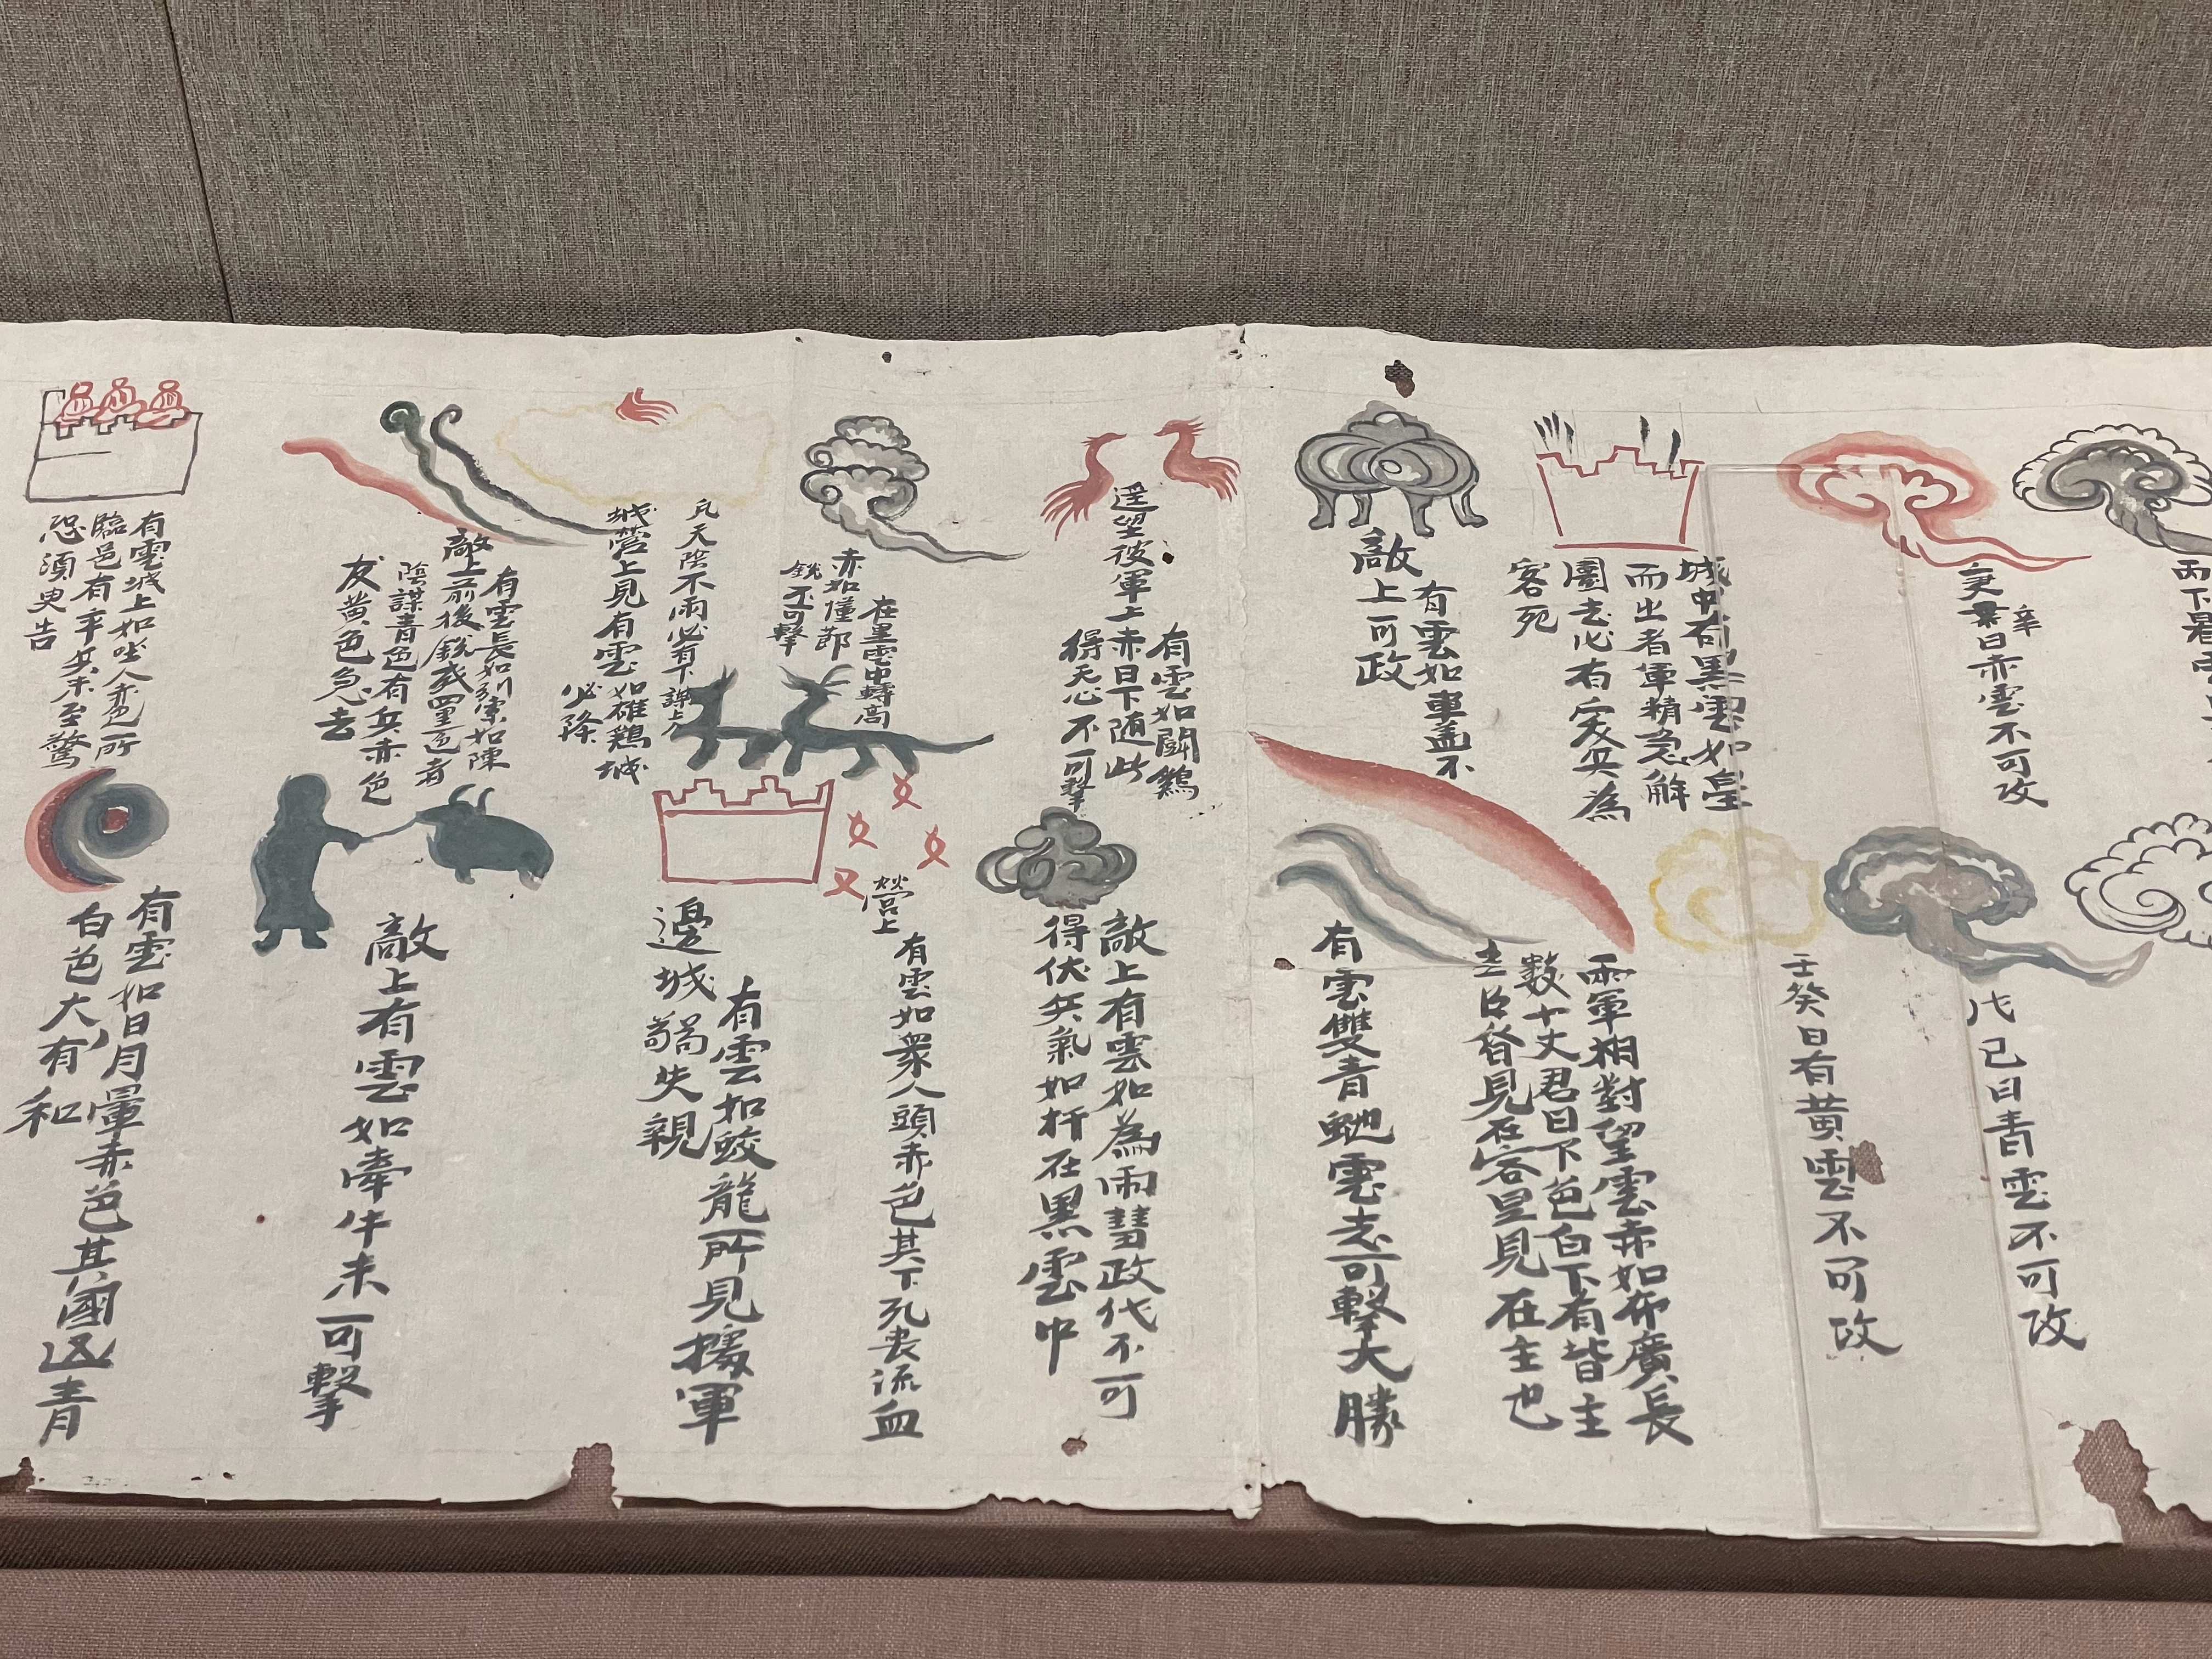 丙下
庚辛
日赤雲不可攻
城中有黑雲如星
而出者軍精急解
圍去必有突兵為
客死
有雲如車蓋不
敵上可政
有雲如鬭鷄
遥望彼軍上赤日下随此
得天心不可擊
在黑雲中轉高
赤如僅節
銳不可擊
凡天陰不雨必有下謀上
城營上見有雲如雄鷄城
必降
有雲長如引索如陳
敵上前後銳或四黑色者
陰謀青色有兵赤色
友黄色急去
有雲城上如坐人赤色所
臨邑有卒兵来至驚
恐須臾告
戊己日青雲不可攻
壬癸日有黄雲不可攻
兩軍相對望雲赤如布廣長
數十丈君日下色白下有皆主
見在客星見在主也
有雲雙青虵雲去可擊大勝
敵上有雲如為雨彗政代不可
得伏兵氣如杅在黑雲中
營上
有雲如衆人頭赤色其下死喪流血
有雲如蛟龍所見援軍
邊城 失親
敵上有雲如牽牛未可擊
有雲如日月暈赤色其國凶青
白色大有和